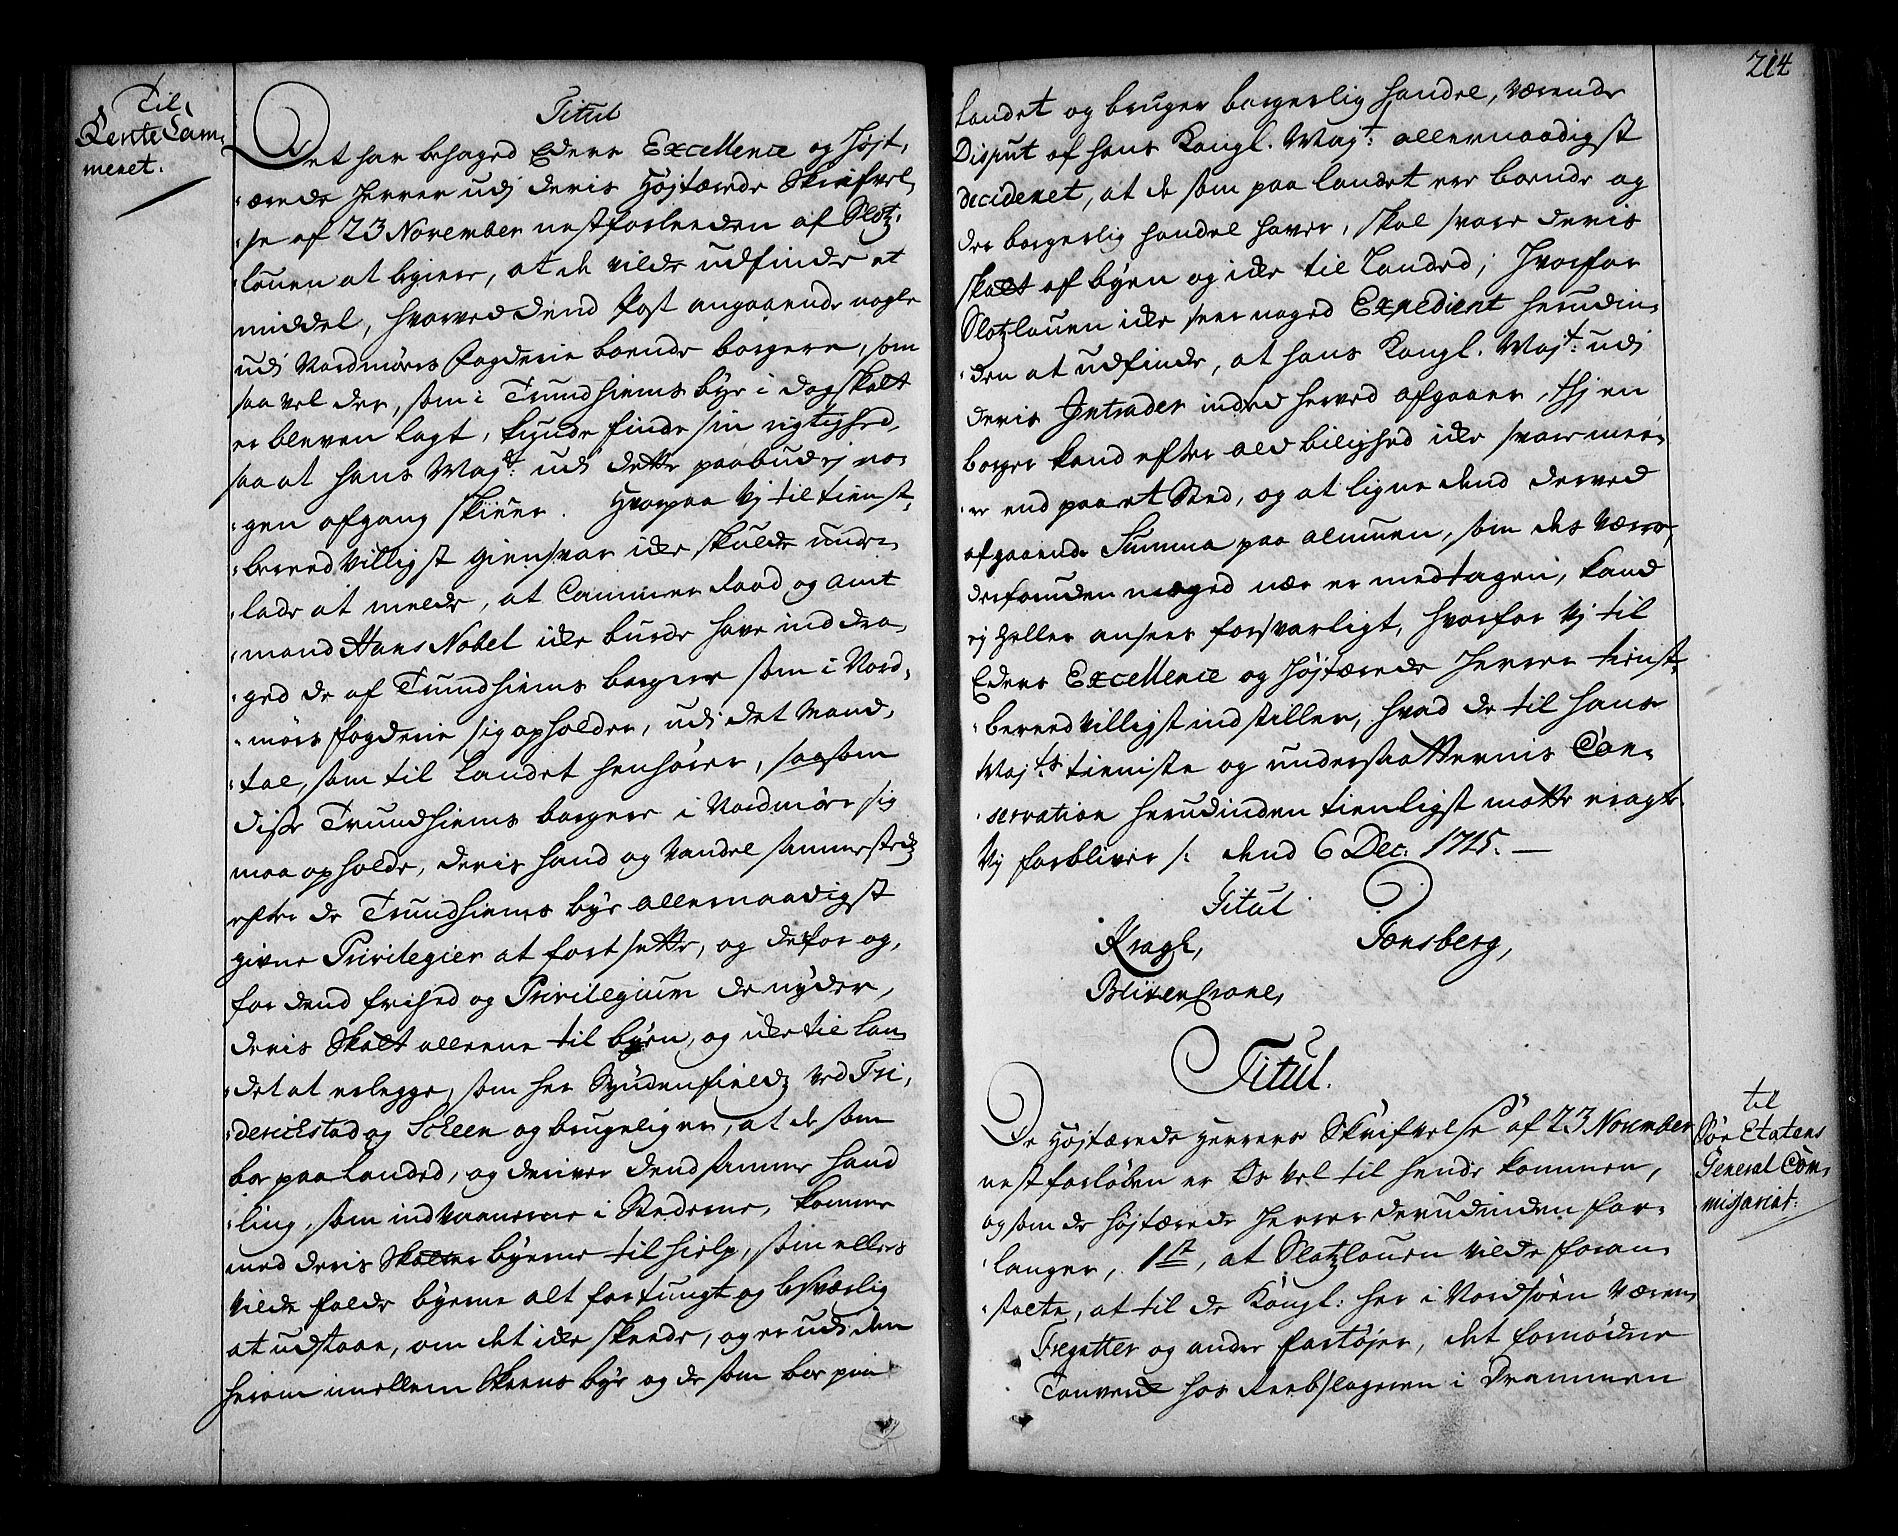 Til
Rente Cam¬
meret.
Titul
Det har behaged Eders Excellence og Højt¬
ærede Herrer udj deris Højtærede Skrifvel¬
se af 23 November nestforleeden af Slotz¬
louen at begiere, at de vilde udfinde et
middel, hvorved dend Post angaaende nogle
udj Nordmörs Fogderie boende borgere, som
saa vel der, som i Trundhiems bye i dagskatt
er bleven lagt, kunde finde sin rigtighed,
saa at hans Majt: udj dette paabud ej no¬
gen afgang skieer. Hvorpaa Vj til tienst¬
bereedvilligst giensvar icke skulde unde¬
lade at melde, at Cammer Raad og Amt
mand Hans Nobel icke burde have inddra¬
ged de af Trundhiems borgere som i Nord¬
mörs fogderie sig opholder, udj det Mand¬
tal, som til Landet henhörer, saasom
disse Trundhiems borgere i Nordmöre sig
maa opholde, deris hand og Vandel sammesteds
efter de Trundhiems bye allernaadigst
givne Privilegier at fortsette, og derfor og,
for dend frihed og Privilegium de nyder,
deris Skatt alleene til byen, og icke til lan¬
det at erlegge, som her Syndenfields ved Fri¬
derichstad og Scheen og brugelig er, at de som
bor paa Landed, og driver dend samme hand
ling, som indvaanerne i Stæderne, kommer
med deris Skatter byerne til hielp, som ellers
vilde falde byerne alt for tungt og besværlig
at udstaae, om det icke skeede, og er udj den
herom imellem Skeens bye og de som bor paa
214
landet og bruger borgerlig handel, værende
Disput af hans Kongl. Majt: allernaadigst
decideret, at de som paa landet ere boende og
der borgerlig handel haver, skal svare deris
skatt af byen og icke til Landed; Hvorfor
Slotzlouen icke seer noged Expedient herudin¬
den at udfinde, at hans Kongl. Majt: udj
deris Intrader inted herved afgaaer, thj en
borger kand efter all billighed icke svare mee¬
re end paa et Sted, og at ligne dend derved
afgaaende Summa paa almuen, som des værre,
desforuden meeged nær er medtagen, kand
ej heller ansees forsvarligt, hvorfor Vj til
Eders Excellence og Højtærede Herrer tienst¬
bereedvilligst indstiller, hvad de til hans
Majts tieniste og undersaatternis Con¬
servation herudinden tienligst motte eragte
Vj forbliver /: dend 6 Dec: 1715. —
Titul
Kragh, Tønsberg,
Blixencrone,
Titul.
De Højtærede Herrers Skrifvelse af 23 November
nestforløben er Os vel til hende kommen,
og som de Højtærede Herrer derudinden for¬
langer, 1st, at Slotzlouen vilde foran¬
stalte, at til de Kongl: her i Nordsöen væren¬
Fregatter og andre fartøjer, det fornødne
Tauverk hos Reebslageren i Drammen
til
Søe Etatens
General Com¬
missariat: